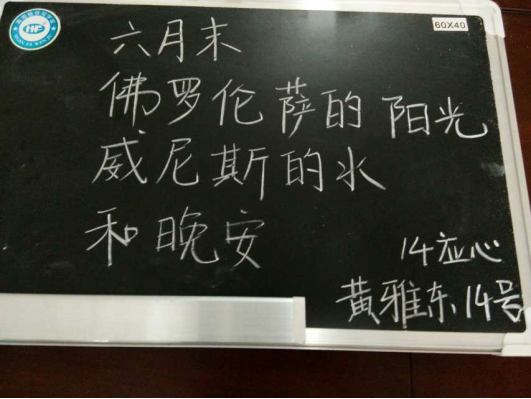 60X40
HF
六月末
佛罗伦萨的阳光
威尼斯的水
和晚安
14应心
黄雅东14号